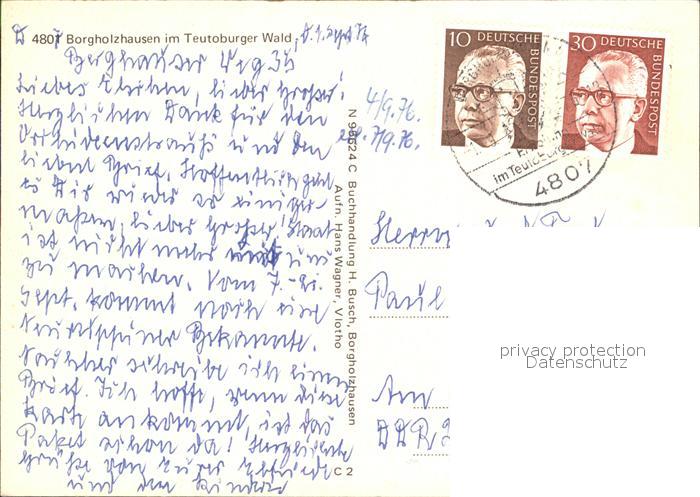 D 4807 Borgholzhausen im Teutoburger Wald, d. 1. Sept. 76
Berghauser Weg 36
Liebes , lieber Großer!
Herzlichen Dank für den
Orchideenstrauß und den
lieben Brief. Hoffentlich geht
es Dir wieder so einiger-
maßen, lieber Großer! Staat
ist nicht mehr und
zu machen. Vom 7.-21.
Sept. kommt noch eine
Bekannte.
Nachher schreibe ich einen
Brief. Ich hoffe, wenn diese
Karte ankommt, ist das
Paket schon da! Herzliche
Grüße von Eurer Elfriede
und den Kindern
4/9.76.
7/9.76.
N 96624 C Buchhandlung H. Busch, Borgholzhausen
Aufn. Hans Wagner, Vlotho
C 2
10 DEUTSCHE BUNDESPOST
30 DEUTSCHE BUNDESPOST
im Teutob
4807
Herrn
Paul
Am
DDR
privacy protection
Datenschutz